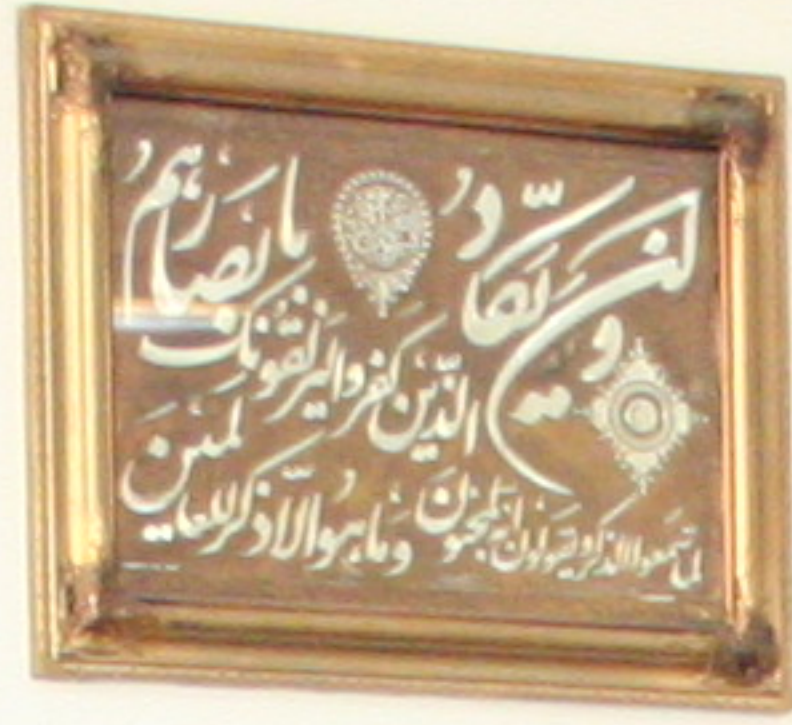 و ان یکاد
الذین کفروا لیزلقونک بابصارهم
لما سمعوا الذکر و یقولون انه لمجنون
و ما هو الا ذکر للعالمین